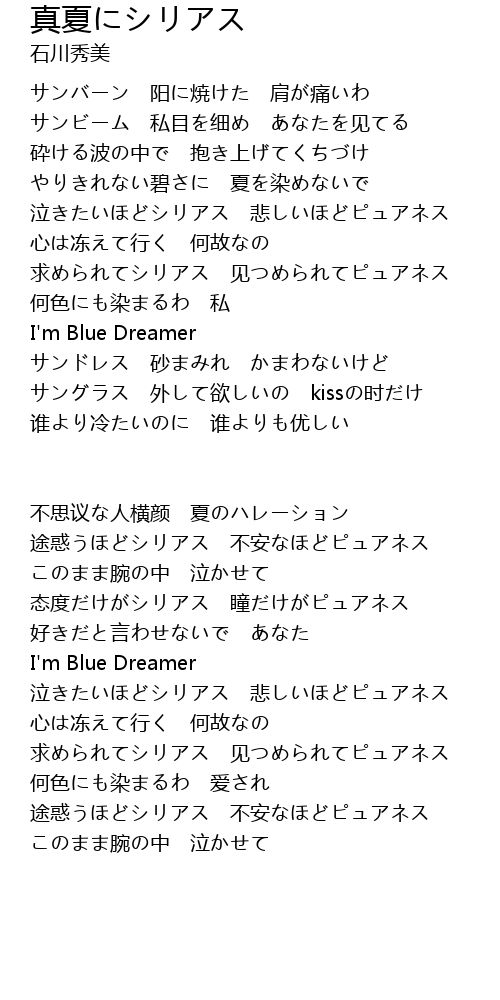 真夏にシリアス
石川秀美
サンバーン　阳に焼けた　肩が痛いわ
サンビーム　私目を细め　あなたを见てる
砕ける波の中で　抱き上げてくちづけ
やりきれない碧さに　夏を染めないで
泣きたいほどシリアス　悲しいほどピュアネス
心は冻えて行く　何故なの
求められてシリアス　见つめられてピュアネス
何色にも染まるわ　私
I'm Blue Dreamer
サンドレス　砂まみれ　かまわないけど
サングラス　外して欲しいの　kissの时だけ
谁より冷たいのに　谁よりも优しい
不思议な人横颜　夏のハレーション
途惑うほどシリアス　不安なほどピュアネス
このまま腕の中　泣かせて
态度だけがシリアス　瞳だけがピュアネス
好きだと言わせないで　あなた
I'm Blue Dreamer
泣きたいほどシリアス　悲しいほどピュアネス
心は冻えて行く　何故なの
求められてシリアス　见つめられてピュアネス
何色にも染まるわ　爱され
途惑うほどシリアス　不安なほどピュアネス
このまま腕の中　泣かせて